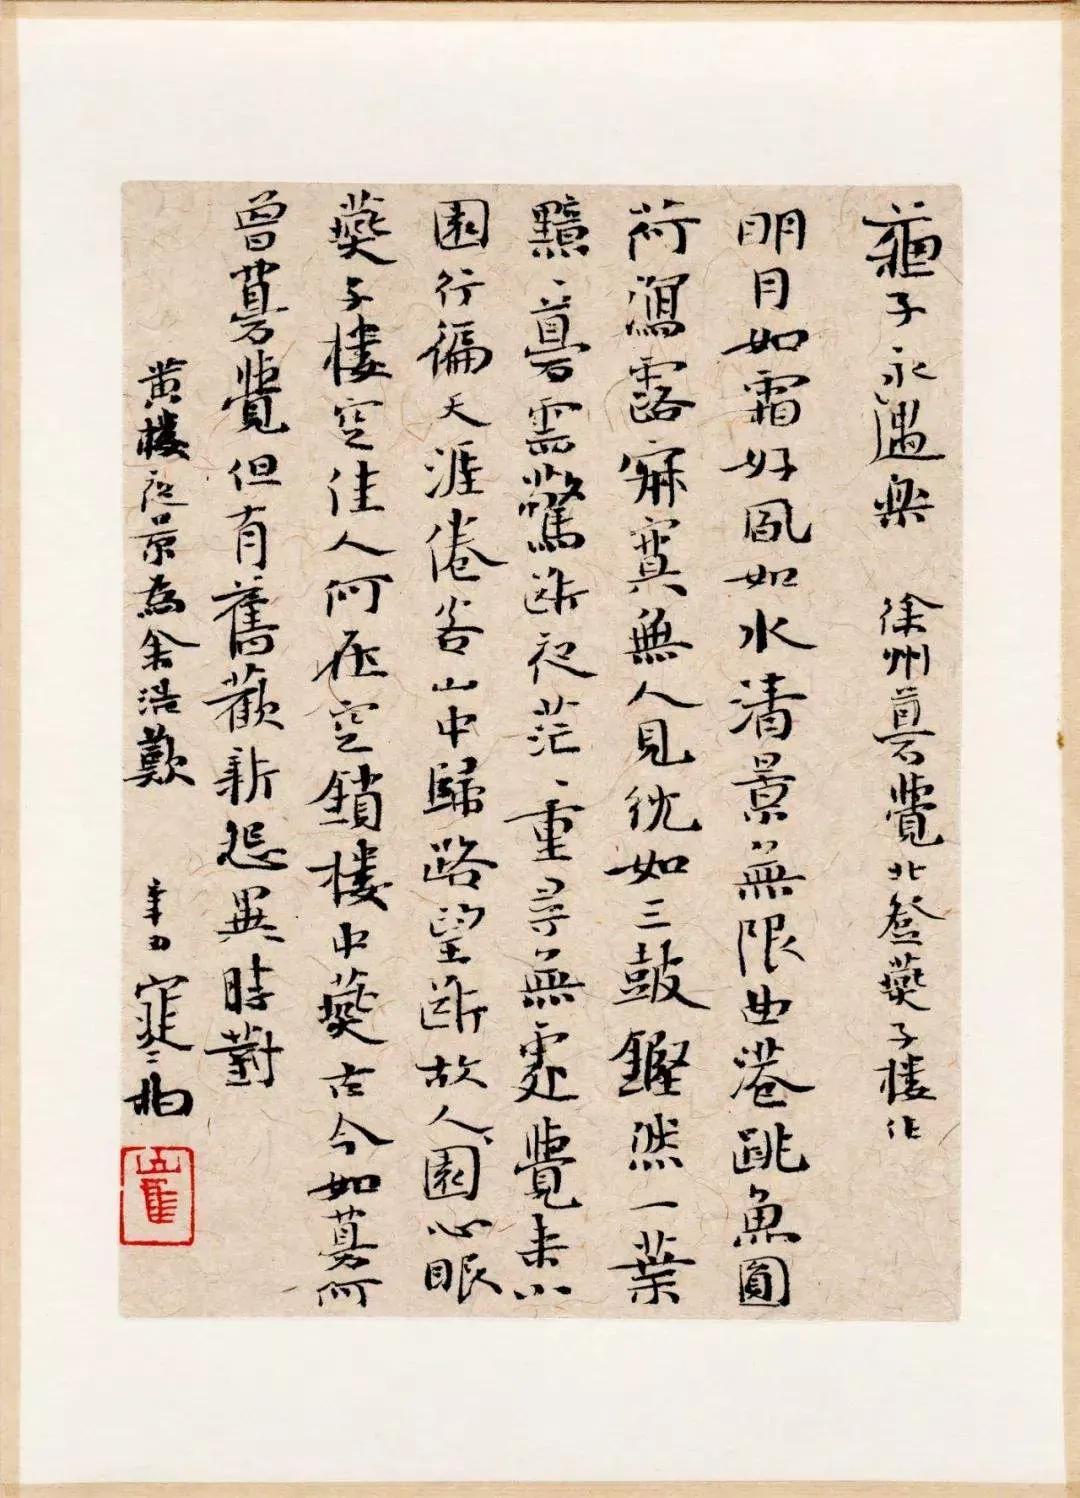 蘇子永遇樂 徐州夢覺北登燕子樓作
明月如霜好風如水清景無限曲港跳魚圓
荷瀉露寂寞無人見紞如三鼓鏗然一葉
黯丶夢雲驚斷夜茫丶重尋無處覺來小
園行徧天涯倦客山中歸路望斷故人園心眼
燕子樓空佳人何在空鎖樓中燕古今如夢何
曾夢覺但有舊歡新怨異時對
黃樓夜景為余浩歎 辛丑